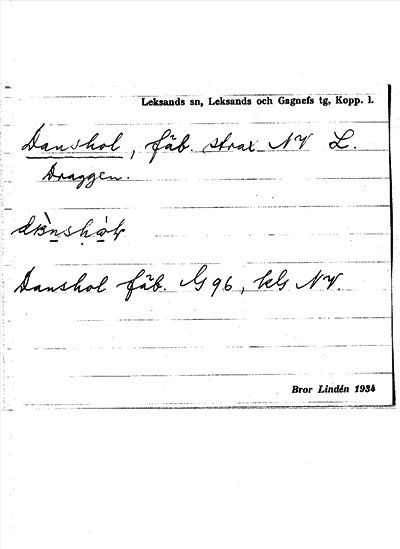 Leksands sn, Leksands och Gagnefs tg, Kopp. l.
Danshol, fäb. strax NV L.
Draggen.
Danshol fäb. G96, kls NV.
Bror Lindén 1934